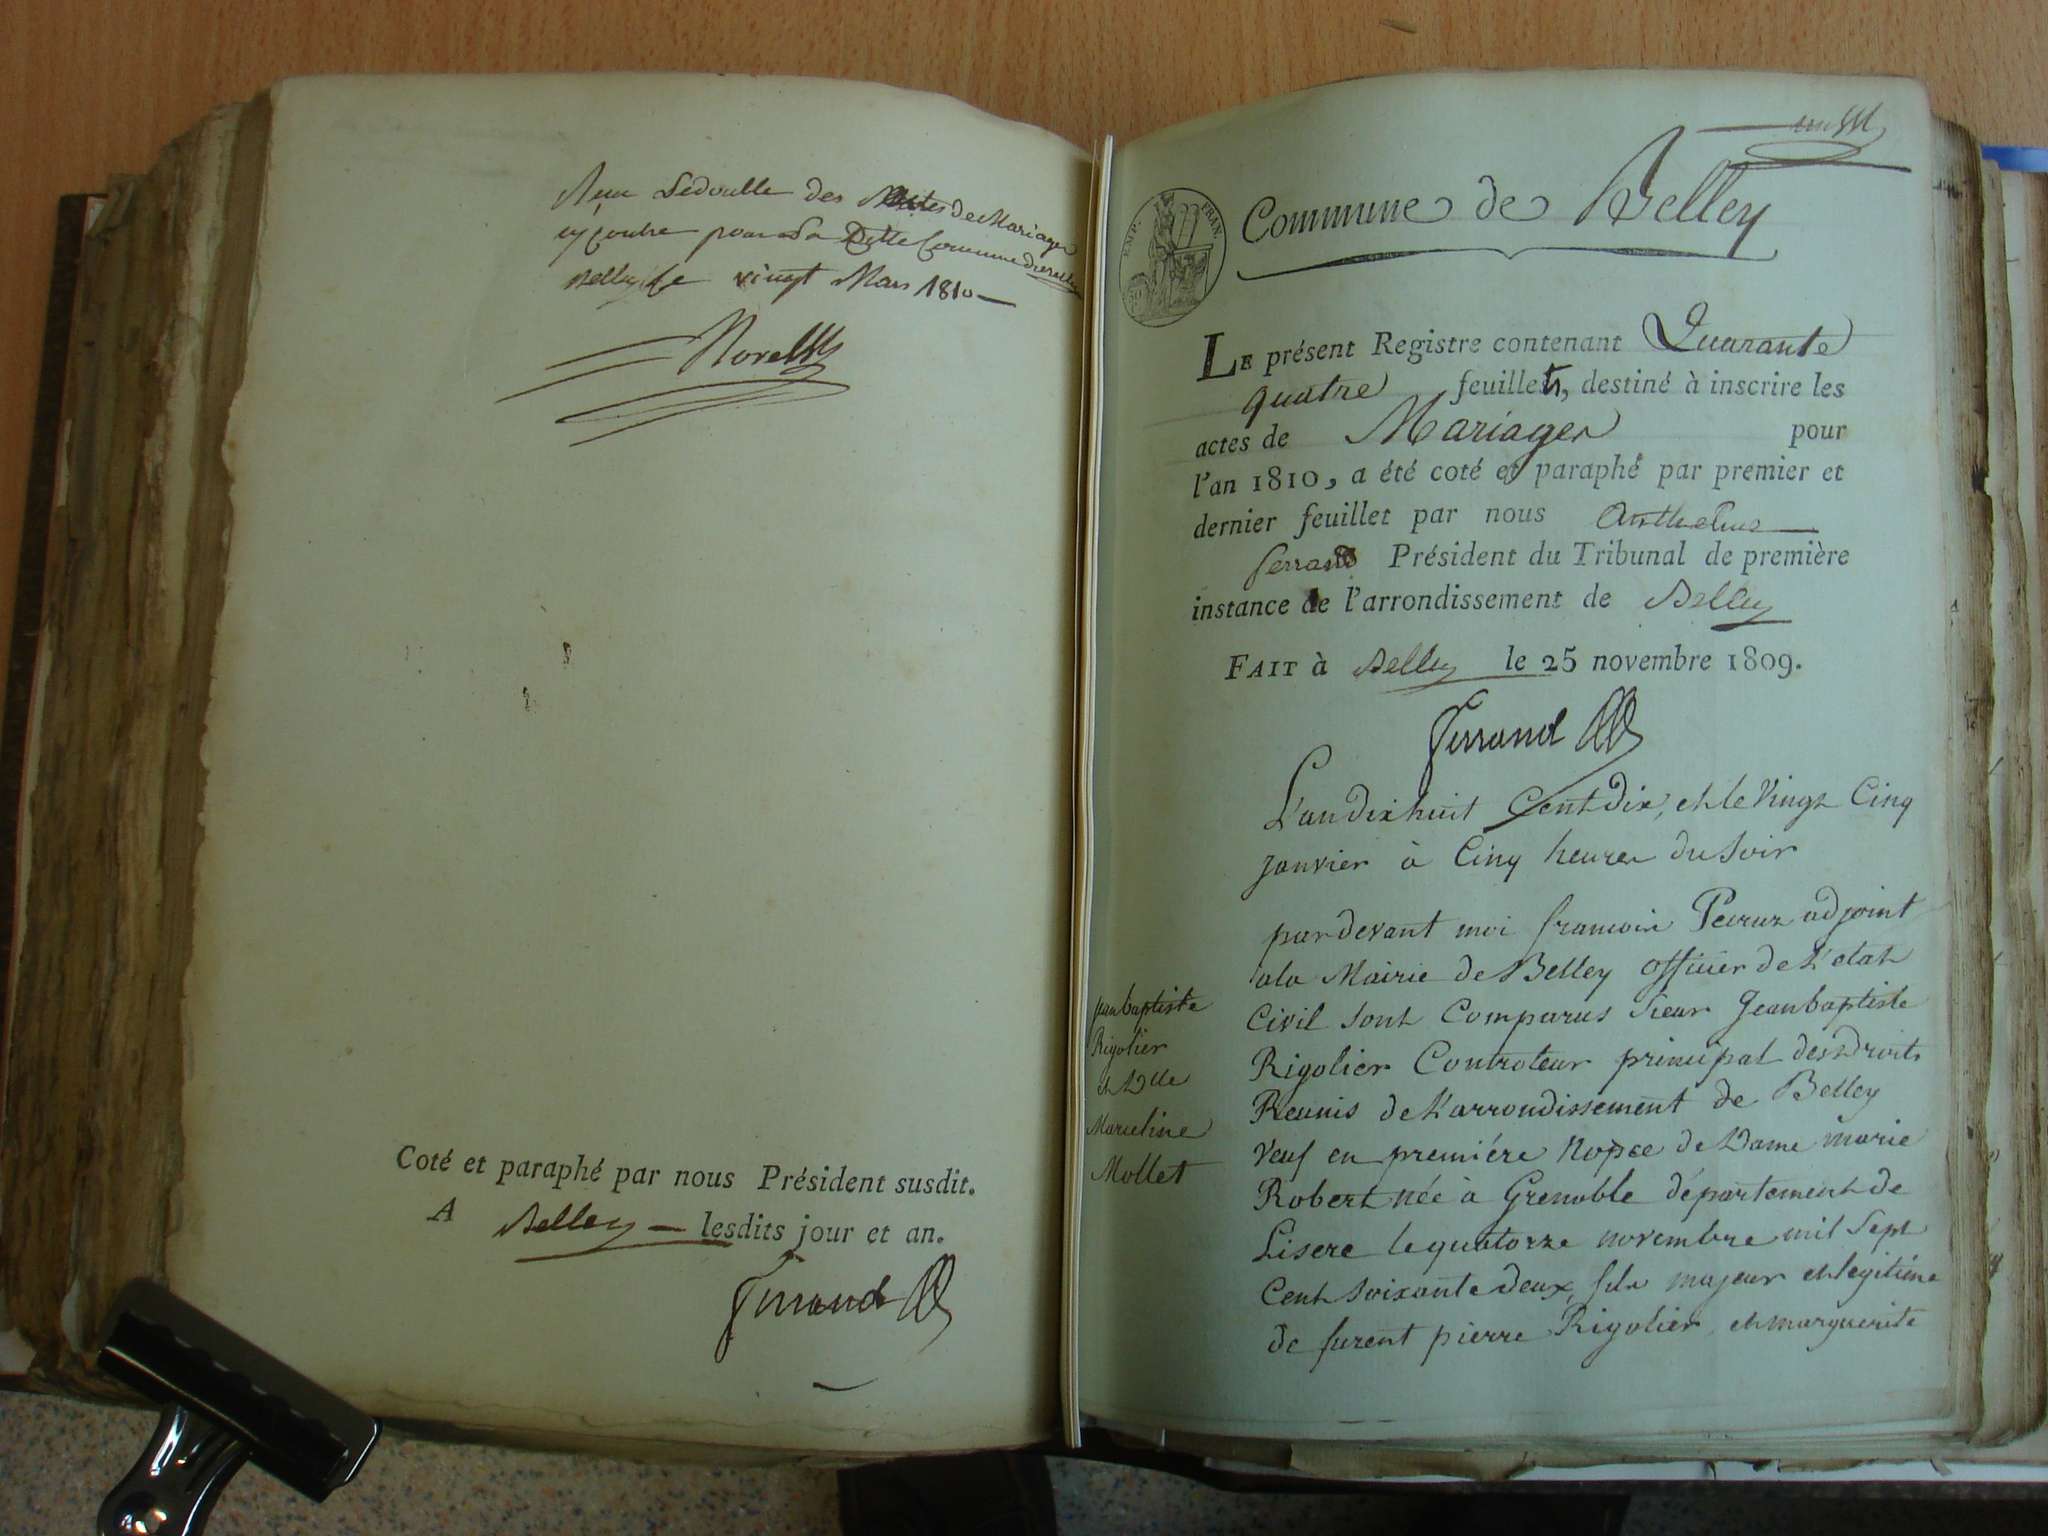 Reçu Ledoulle des Actes de Mariages
cy contre pour La Ditte Commune de
Belley Le vingt Mars 1810
Coté et paraphé par nous Président susdit.
A Belley lesdits jour et an.
Ferrand
EMP. FRAN.
Commune de Belley
LE présent Registre contenant Quarante
quatre feuillets, destiné à inscrire les
actes de Mariages pour
l'an 1810, a été coté et paraphé par premier et
dernier feuillet par nous Anthelme
ferrand Président du Tribunal de première
instance de l'arrondissement de Belley
FAIT à Belley le 25 novembre 1809.
Ferrand
L'an Dix huit Cent Dix, et le Vingt Cinq
janvier à Cinq heures du Soir
par devant moi francois Peuruz adjoint
ala Mairie de Belley officier de L'etat
Civil sont Comparus Sieur Jean baptiste
Rigolier Controleur principal des Droits
Reunis de L'arrondissement de Belley
Veuf en premiére Nopce de Dame marie
Robert née à Grenoble département de
Lisere le quatorze novembre mil Sept
Cent Soixante deux, fils majeur et legitime
de furent pierre Rigolier, et marguerite
jean baptiste
Rigolier
et Dlle
Marceline
Mollet